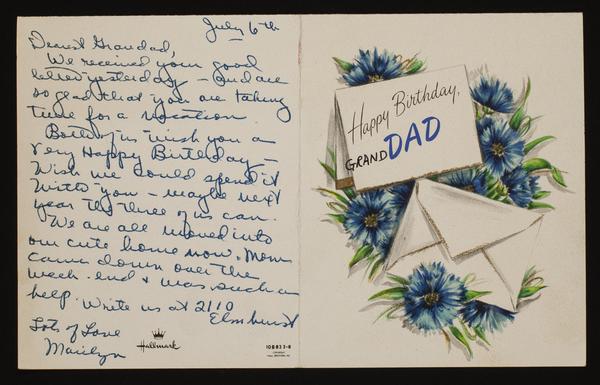 July 6th
Dearest Grandad,
We received your good
letter yesterday - and are
so glad that you are taking
time for a vacation
Both of us wish you a
very Happy Birthday -
Wish we could spend it
with you - maybe next
year the three of us can.
We are all moved into
our cute home now. Mom
came down over the
week-end & was such a
help. Write us at 2110
Elmhurst
Lots of Love
Marilyn
Hallmark
Happy Birthday,
GRAND DAD